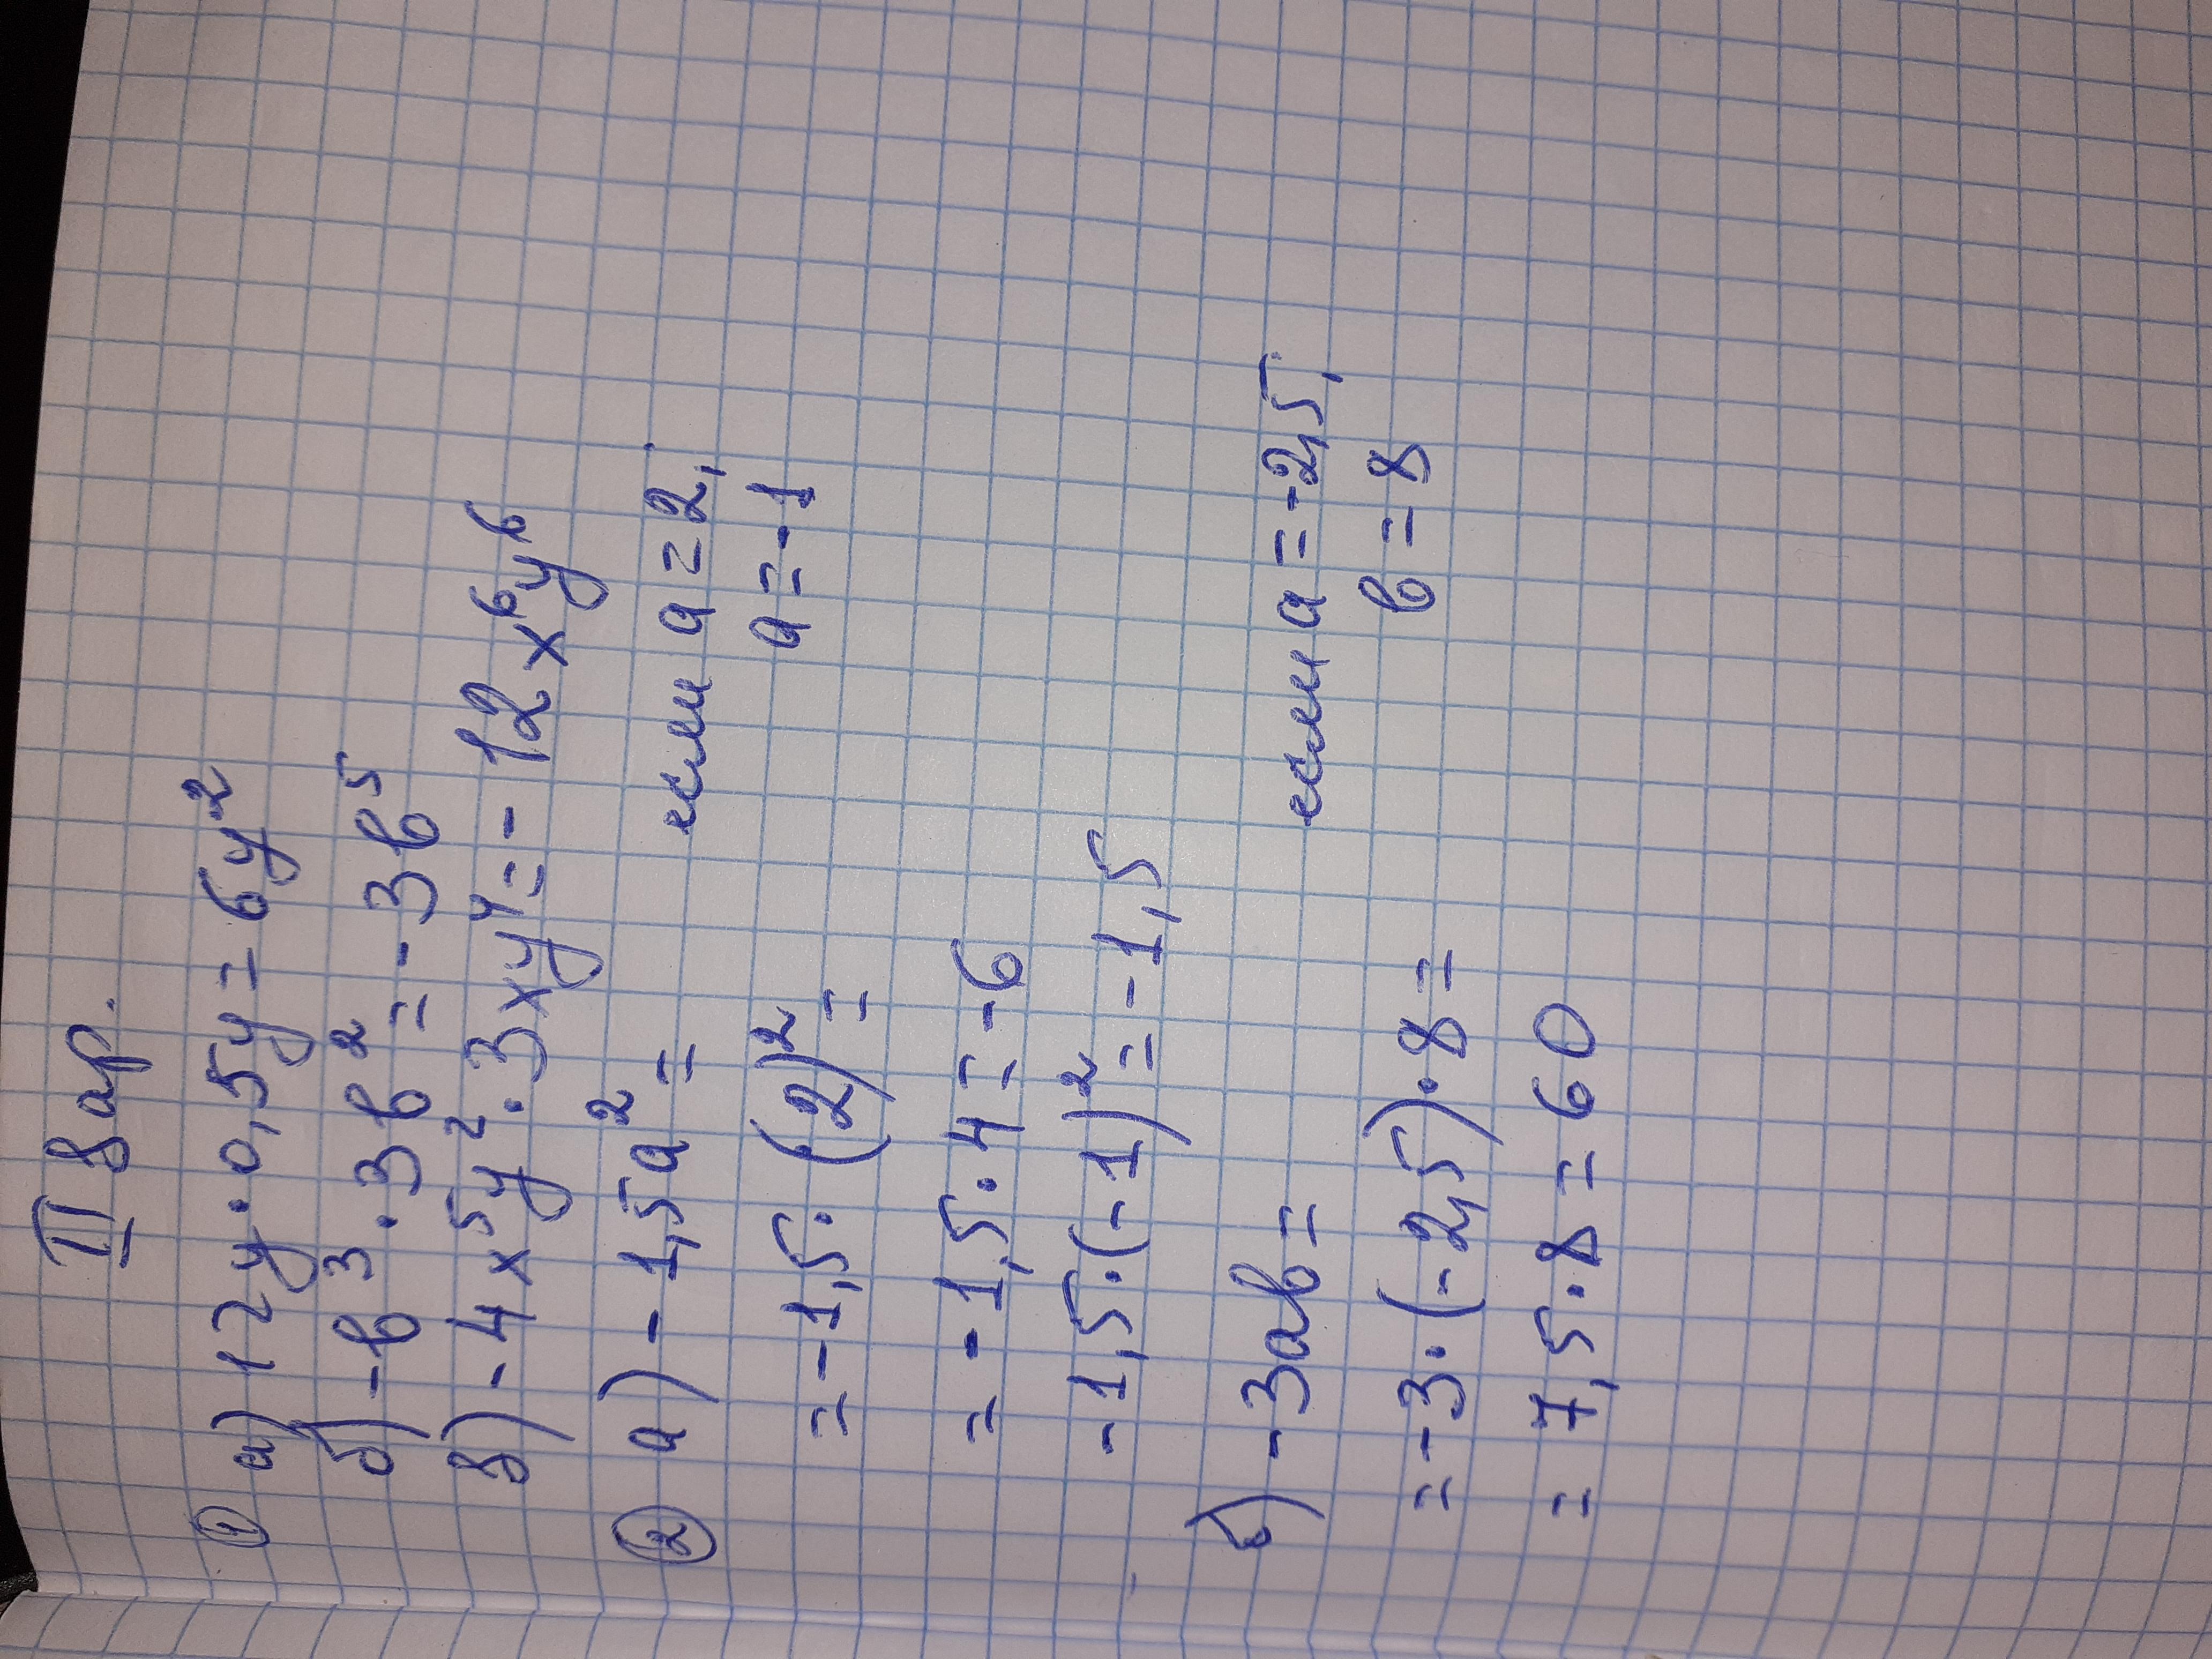 II вар.
① а) 12y · 0,5y = 6y²
б) -b³ · 3b² = -3b⁵
в) -4x⁵y² · 3xy⁴ = -12x⁶y⁶
② а) -1,5a² = если a = 2,
a = -1
= -1,5 · (2)² =
= -1,5 · 4 = -6
-1,5 · (-1)² = -1,5
б) -3ab = если a = -2,5,
b = 8
= -3 · (-2,5) · 8 =
= 7,5 · 8 = 60